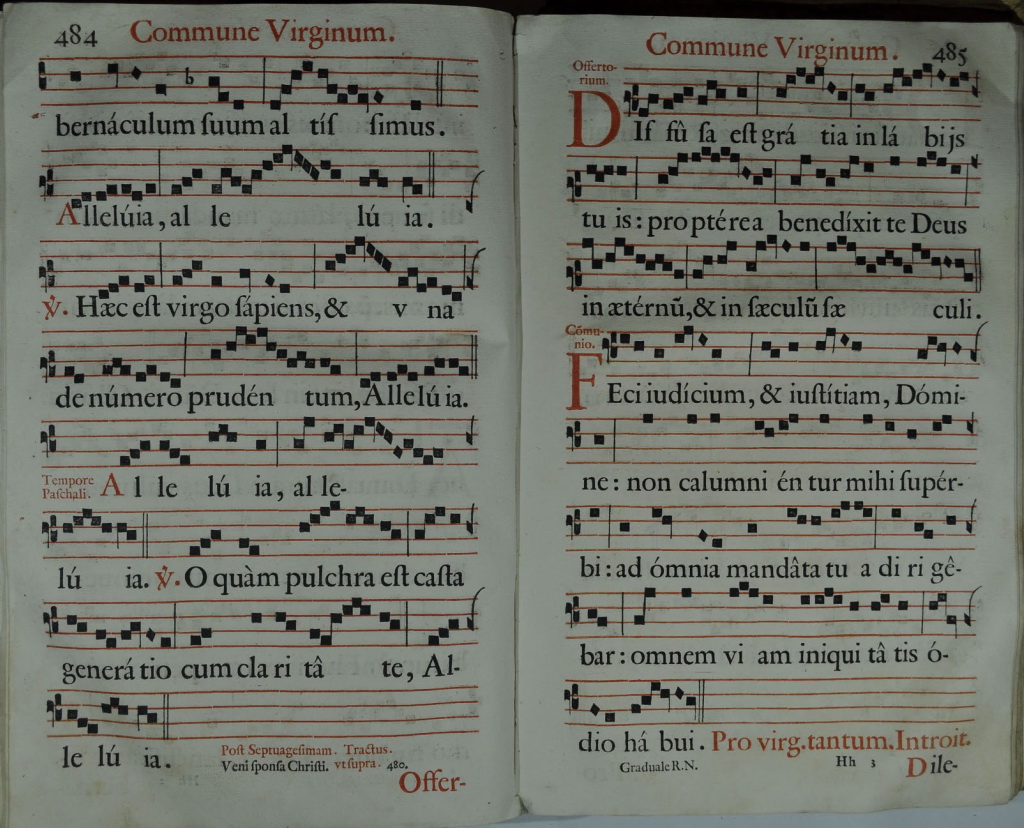 484 Commune Virginum.
bernáculum ſuum al tiſ ſimus.
Allelúia, al le lú ia.
℣. Hæc eſt virgo ſápiens, & v na
de número prudén tum, Allelú ia.
Tempore Paſchali. A l le lú ia, al le-
lú ia. ℣. O quàm pulchra eſt caſta
generá tio cum cla ri tâ te, Al-
le lú ia.
Poſt Septuageſimam. Tractus.
Veni ſponſa Chriſti. vt ſupra. 480.
Offer-
Commune Virginum. 485
Offerto-
rium.
DIf fû ſa eſt grá tia in lá bijs
tu is: pro ptérea benedíxit te Deus
in ætérnũ, & in ſæculũ ſæ culi.
Cõmu-
nio.
FEci iudícium, & iuſtítiam, Dómi-
ne: non calumni én tur mihi ſupér-
bi: ad ómnia mandâta tu a di ri gê-
bar: omnem vi am iniqui tâ tis ó-
dio há bui. Pro virg. tantum. Introit.
Graduale R.N. Hh 3 Dile-